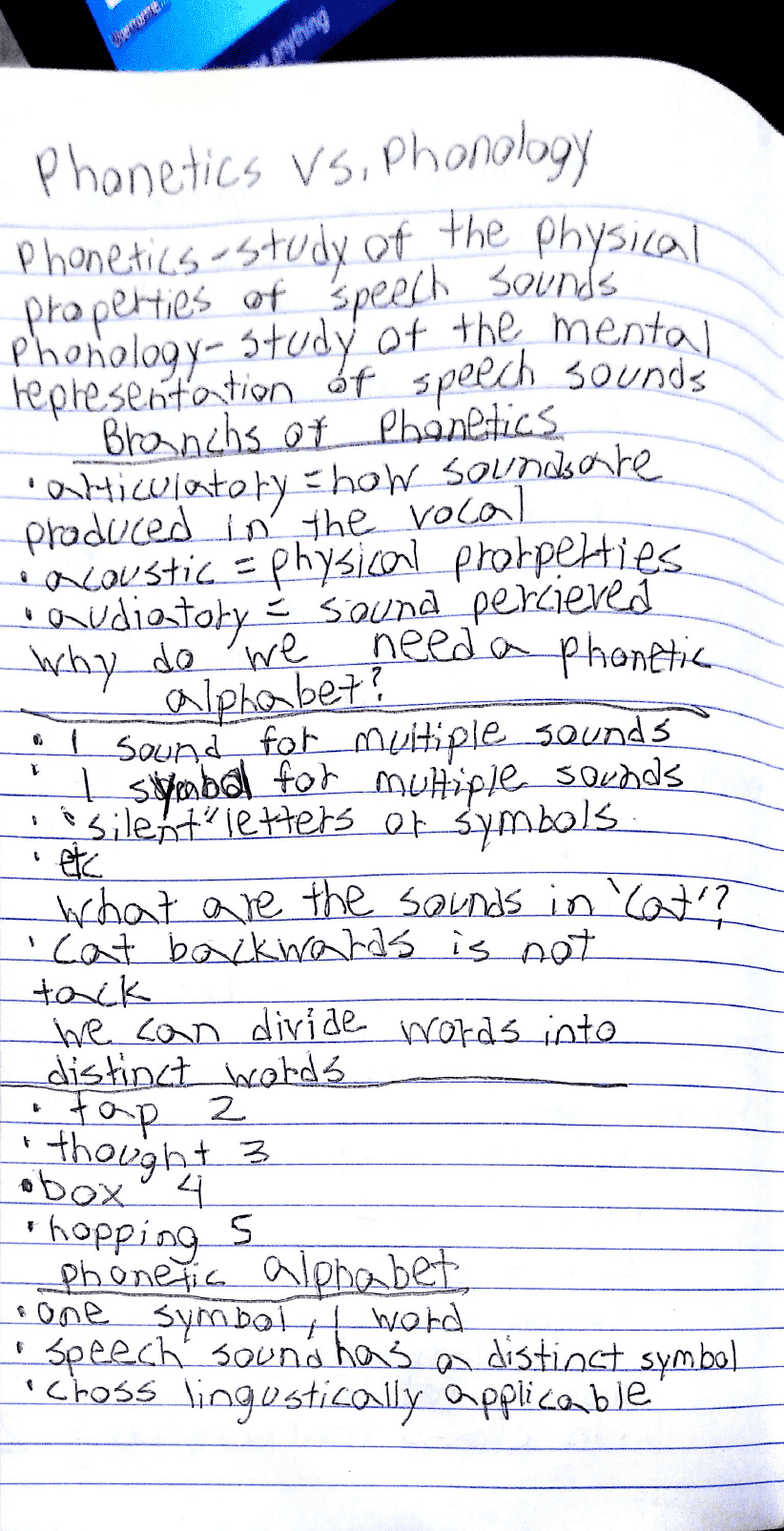 Username...
anything
Phonetics vs. Phonology
Phonetics - study of the physical
properties of speech sounds
Phonology - study of the mental
representation of speech sounds
Branchs of Phonetics
• articulatory = how sounds are
produced in the vocal
• acoustic = physical prorperties
• audiatory = sound percieved
Why do we need a phonetic
alphabet?
• 1 sound for multiple sounds
• 1 symbol for multiple sounds
• "silent" letters or symbols
• etc
What are the sounds in 'Cat'?
• Cat backwards is not
tack
We can divide words into
distinct words
• tap 2
• thought 3
• box 4
• hopping 5
phonetic alphabet
• one symbol, 1 word
• speech sound has a distinct symbol
• cross lingustically applicable